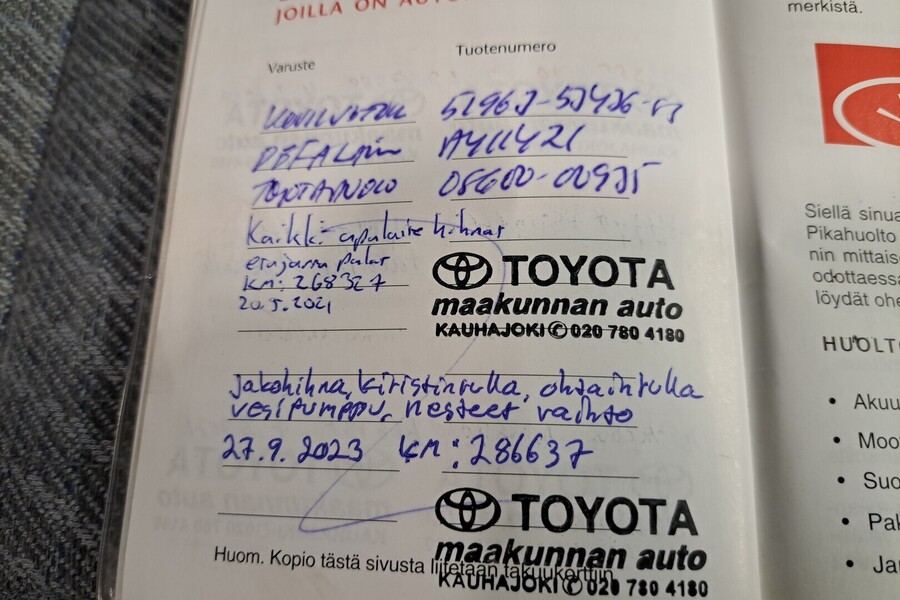 JOILLA ON AUTO
Varuste Tuotenumero
DEFA AY11421
08600-00935
Kaikki apulaite hihnat
etujarru palat
km: 268327
20.5.2021
TOYOTA
maakunnan auto
KAUHAJOKI ✆ 020 780 4180
Jakohihna, kiristinrulla, ohjainrulla
vesipumppu, nesteet vaihto
27.9.2023 km: 286637
TOYOTA
maakunnan auto
KAUHAJOKI ✆ 020 780 4180
Huom. Kopio tästä sivusta liitetään takuukorttiin
merkistä.
Siellä sinua
Pikahuolto
nin mittaise
odottaessa
löydät ohe
HUOLTO
• Akuu
• Moo
• Suo
• Pak
• Ja